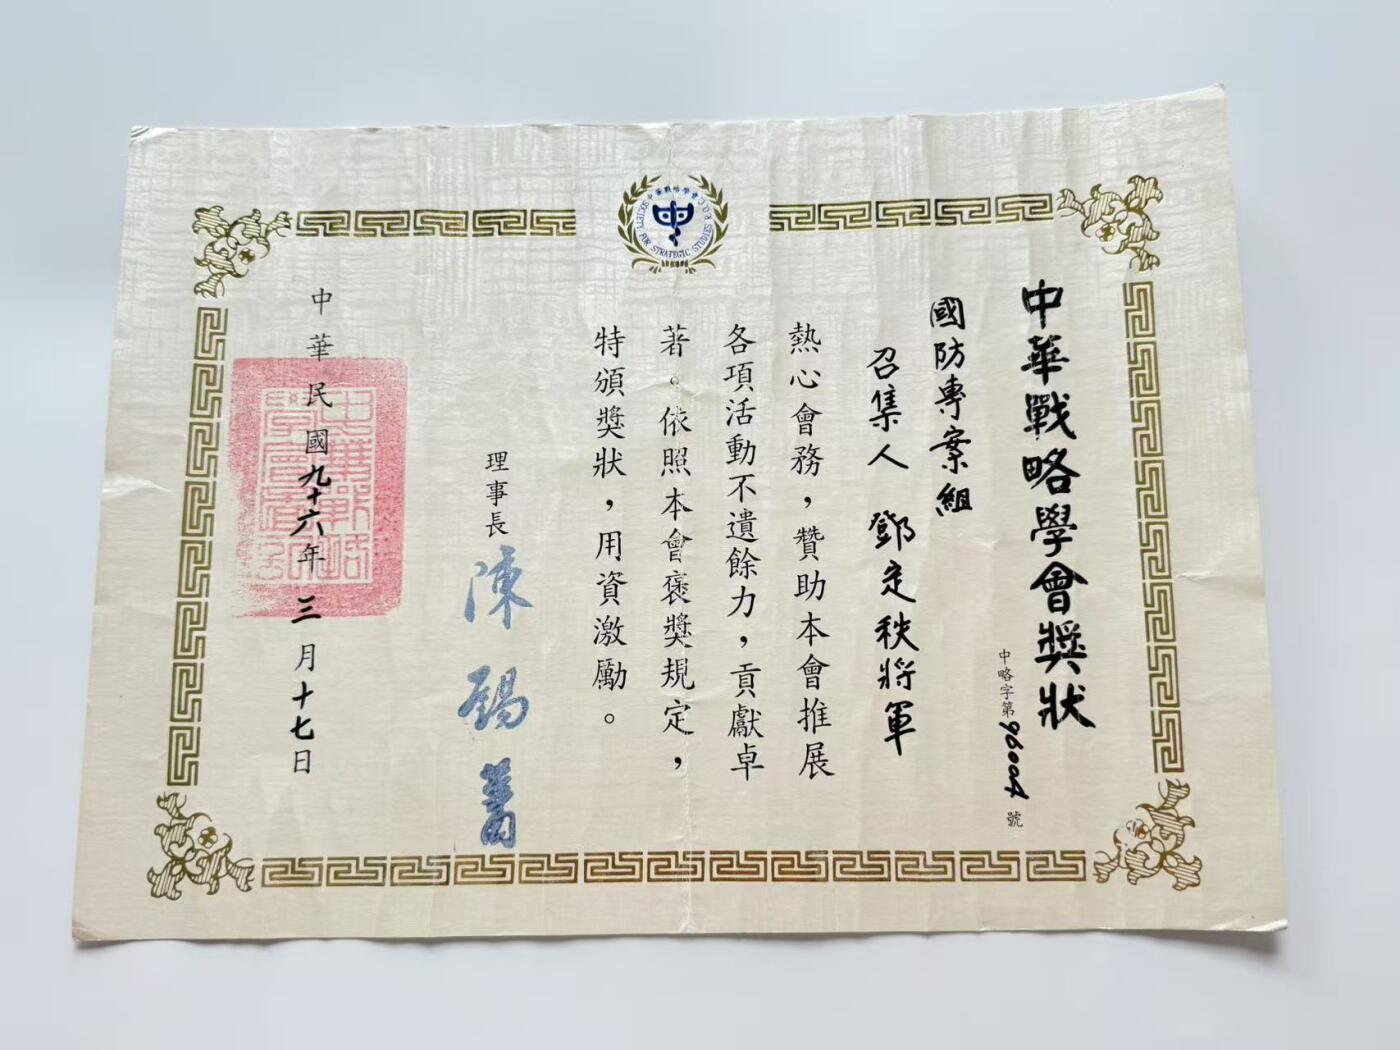 中華戰略學會
SOCIETY FOR STRATEGIC STUDIES R.O.C.
中華戰略學會獎狀
中略字第96004號
國防專案組
召集人 鄧定秩將軍
熱心會務，贊助本會推展
各項活動不遺餘力，貢獻卓
著。依照本會褒獎規定，
特頒獎狀，用資激勵。
理事長 陳錫蕃
中華民國九十六年三月十七日